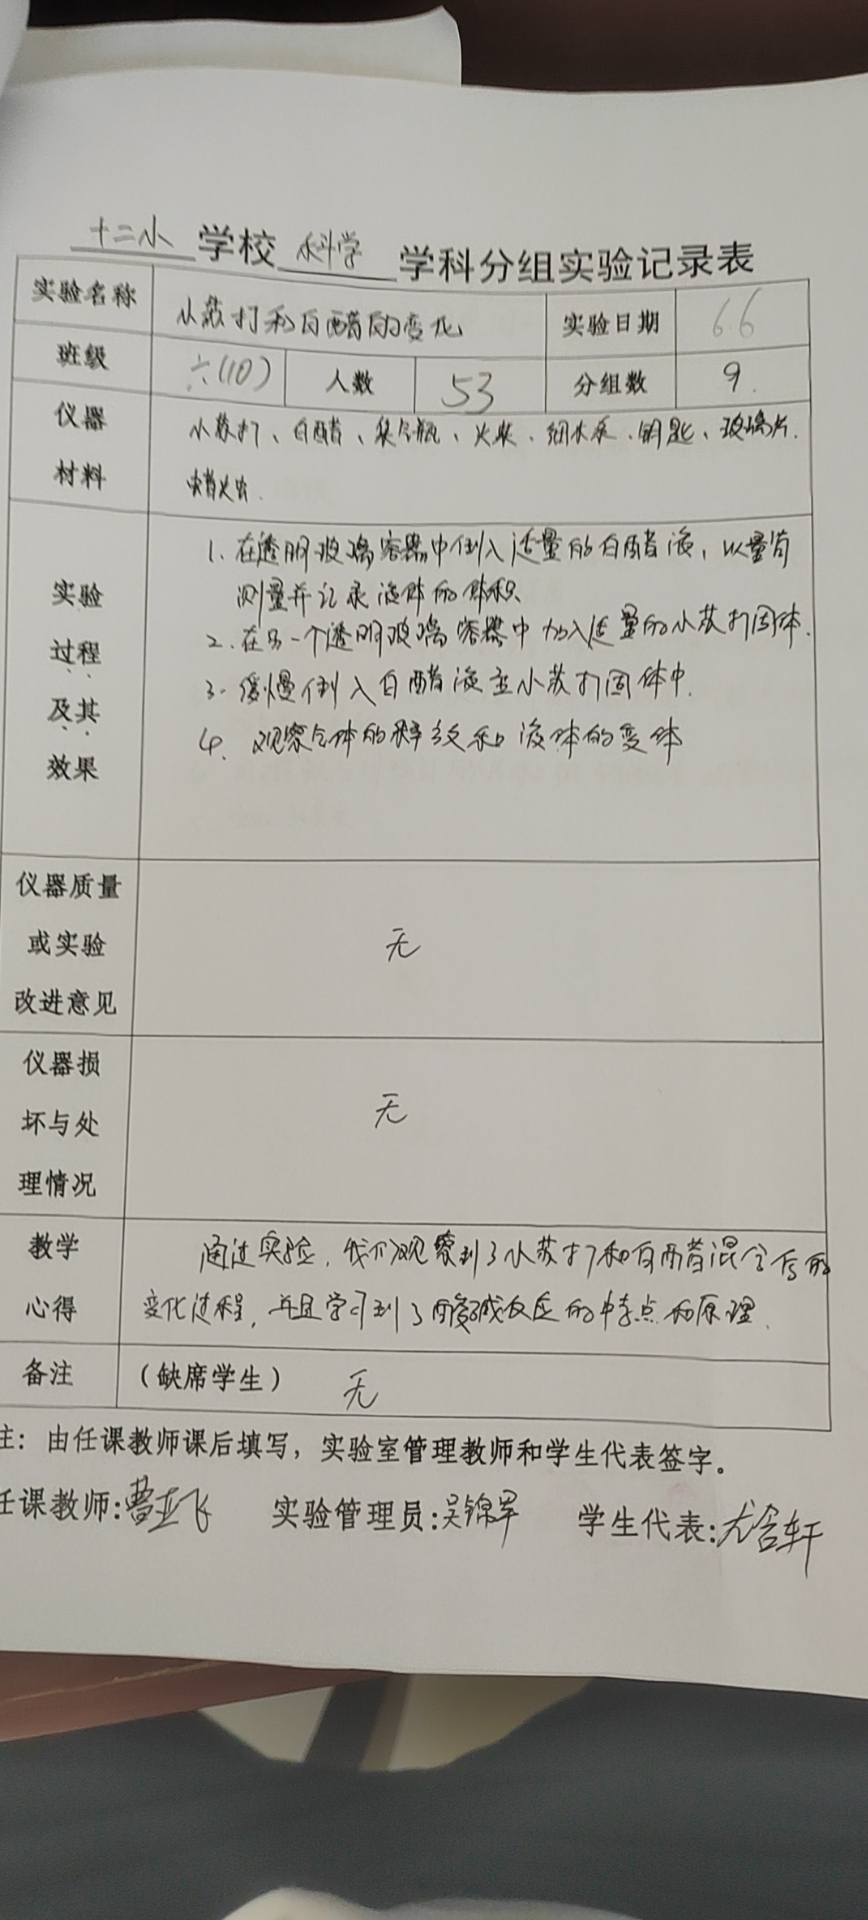 十二小 学校 科学 学科分组实验记录表
实验名称 小苏打和白醋的变化 实验日期 6.6
班级 六(10) 人数 53 分组数 9.
仪器 小苏打、白醋、集气瓶、火柴、细木条、钥匙、玻璃片.
材料 蜡烛.
实验
过程
及其
效果
1. 在透明玻璃容器中倒入适量的白醋液, 以量筒
测量并记录液体的体积
2. 在另一个透明玻璃容器中加入适量的小苏打固体.
3. 缓慢倒入白醋液至小苏打固体中.
4. 观察气体的释放和液体的变体
仪器质量
或实验
改进意见
无
仪器损
坏与处
理情况
无
教学
心得
通过实验, 我们观察到了小苏打和白醋混合后的
变化过程, 并且学习到了酸碱反应的特点和原理.
备注 (缺席学生) 无
注：由任课教师课后填写，实验室管理教师和学生代表签字。
任课教师:曹亚飞 实验管理员:吴锦军 学生代表:尤含轩